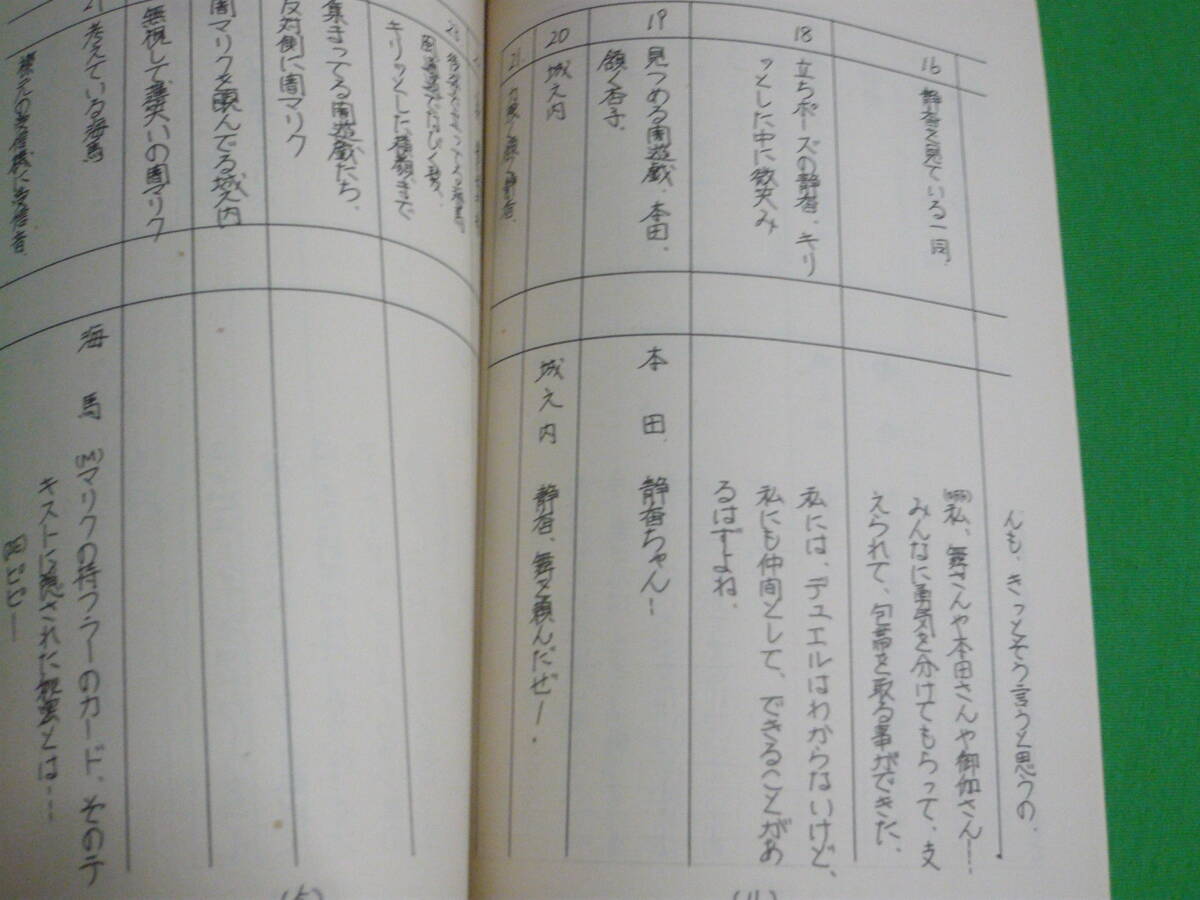 んも、きっとそう言うと思うの。
16
静香を見ている一同。
私、舞さんや本田さんや御伽さん…
みんなに勇気を分けてもらって、支
えられて、包帯を取る事ができた。
18
立ちポーズの静香。キリ
ッとした中に微笑み
私には、デュエルはわからないけど、
私にも仲間として、できることがあ
るはずよね。
19
見つめる闇遊戯、本田、
頷く杏子。
本田
静香ちゃん!
20
城之内
城之内
静香、舞を頼んだぜ!
21
力強く頷く静香
(4)
キリッとした横顔まで
集まってる闇遊戯たち、
反対側に闇マリク
闇マリクを睨んでる城之内
無視して薄笑いの闇マリク
考えている海馬
海馬
(M)マリクの持つラーのカード、そのテ
キストに記された呪文とは…
(5)